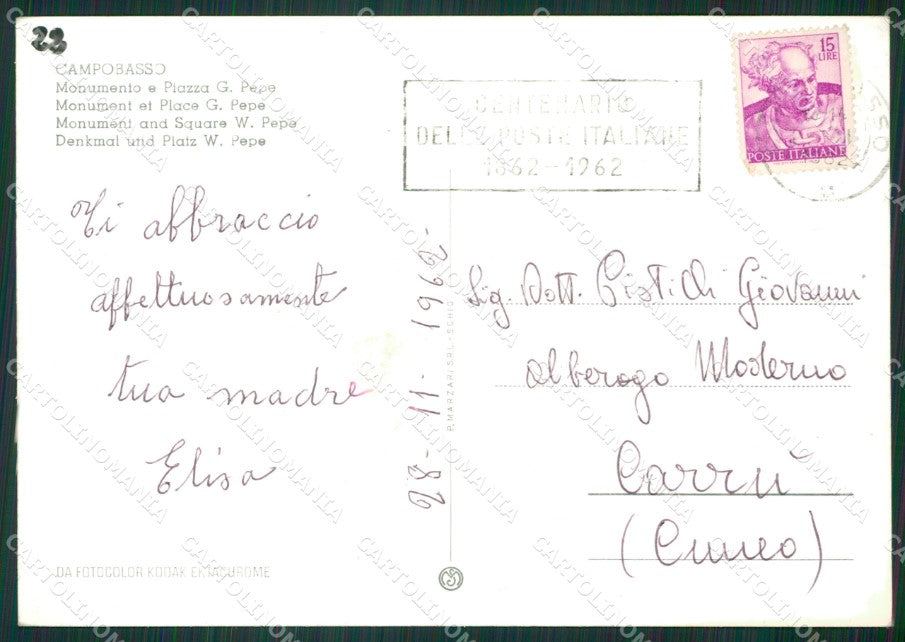 23
CAMPOBASSO
Monumento e Piazza G. Pepe
Monument et Place G. Pepe
Monument and Square W. Pepe
Denkmal und Platz W. Pepe
CENTENARIO
DELLE POSTE ITALIANE
1862-1962
15
LIRE
POSTE ITALIANE
Ti abbraccio
affettuosamente
tua madre
Elisa
28-11-1962
P. MARZARI S.R.L. - SCHIO
Sig. Dott. Pistilli Giovanni
Albergo Moderno
Carrù
(Cuneo)
DA FOTOCOLOR KODAK EKTACHROME
CARTOLINOMANIA